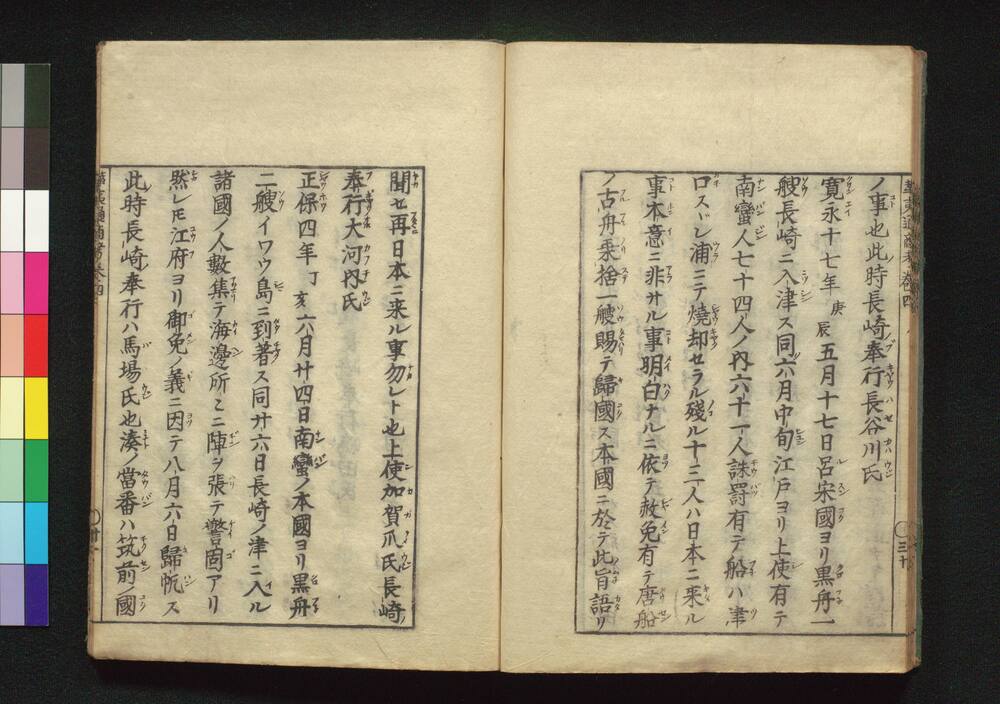 華夷通商考 巻四
三十
ノ事也此時長崎奉行長谷川氏
寛永十七年庚辰五月十七日呂宋國ヨリ黒舟一
艘長崎ニ入津ス同六月中旬江戸ヨリ上使有テ
南蠻人七十四人ノ内六十一人誅罸有テ船ハ津
口スヾレ浦ニテ燒却セラル殘ル十三人ハ日本ニ来ル
事本意ニ非サル事明白ナルニ依テ赦免有テ唐船
ノ古舟乗捨一艘賜テ歸國ス本國ニ於テ此旨語リ
聞セ再日本ニ来ル事勿レト也上使加賀爪氏長崎ノ
奉行大河内氏
正保四年丁亥六月廿四日南蠻ノ本國ヨリ黒舟
二艘イワウ島ニ到著ス同廿六日長崎ノ津ニ入ル
諸國ノ人數集テ海邊所〻ニ陣ヲ張テ警固アリ
然レモ江府ヨリ御免ノ義ニ因テ八月六日歸帆ス
此時長崎奉行ハ馬場氏也湊ノ當番ハ筑前ノ國
華夷通商考巻四
卅一